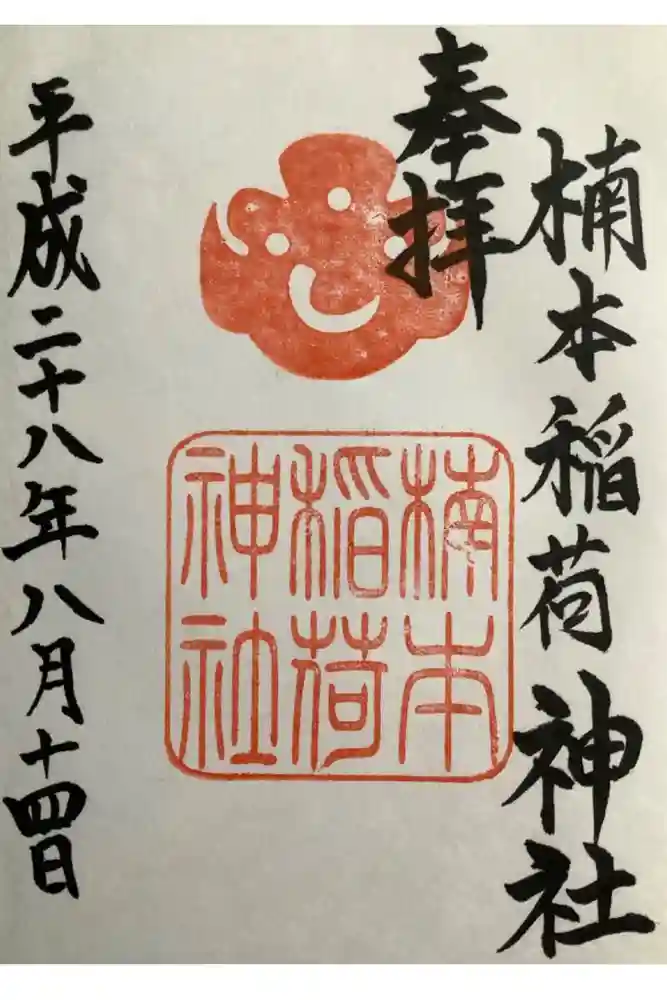 楠本稲荷神社
奉拝
楠本
稲荷
神社
平成二十八年八月十四日